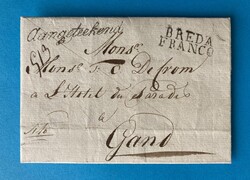 Aangeteekend
BREDA
FRANCO
Monsr
Monsr F: C De from
à L'Hotel du
à
Gand